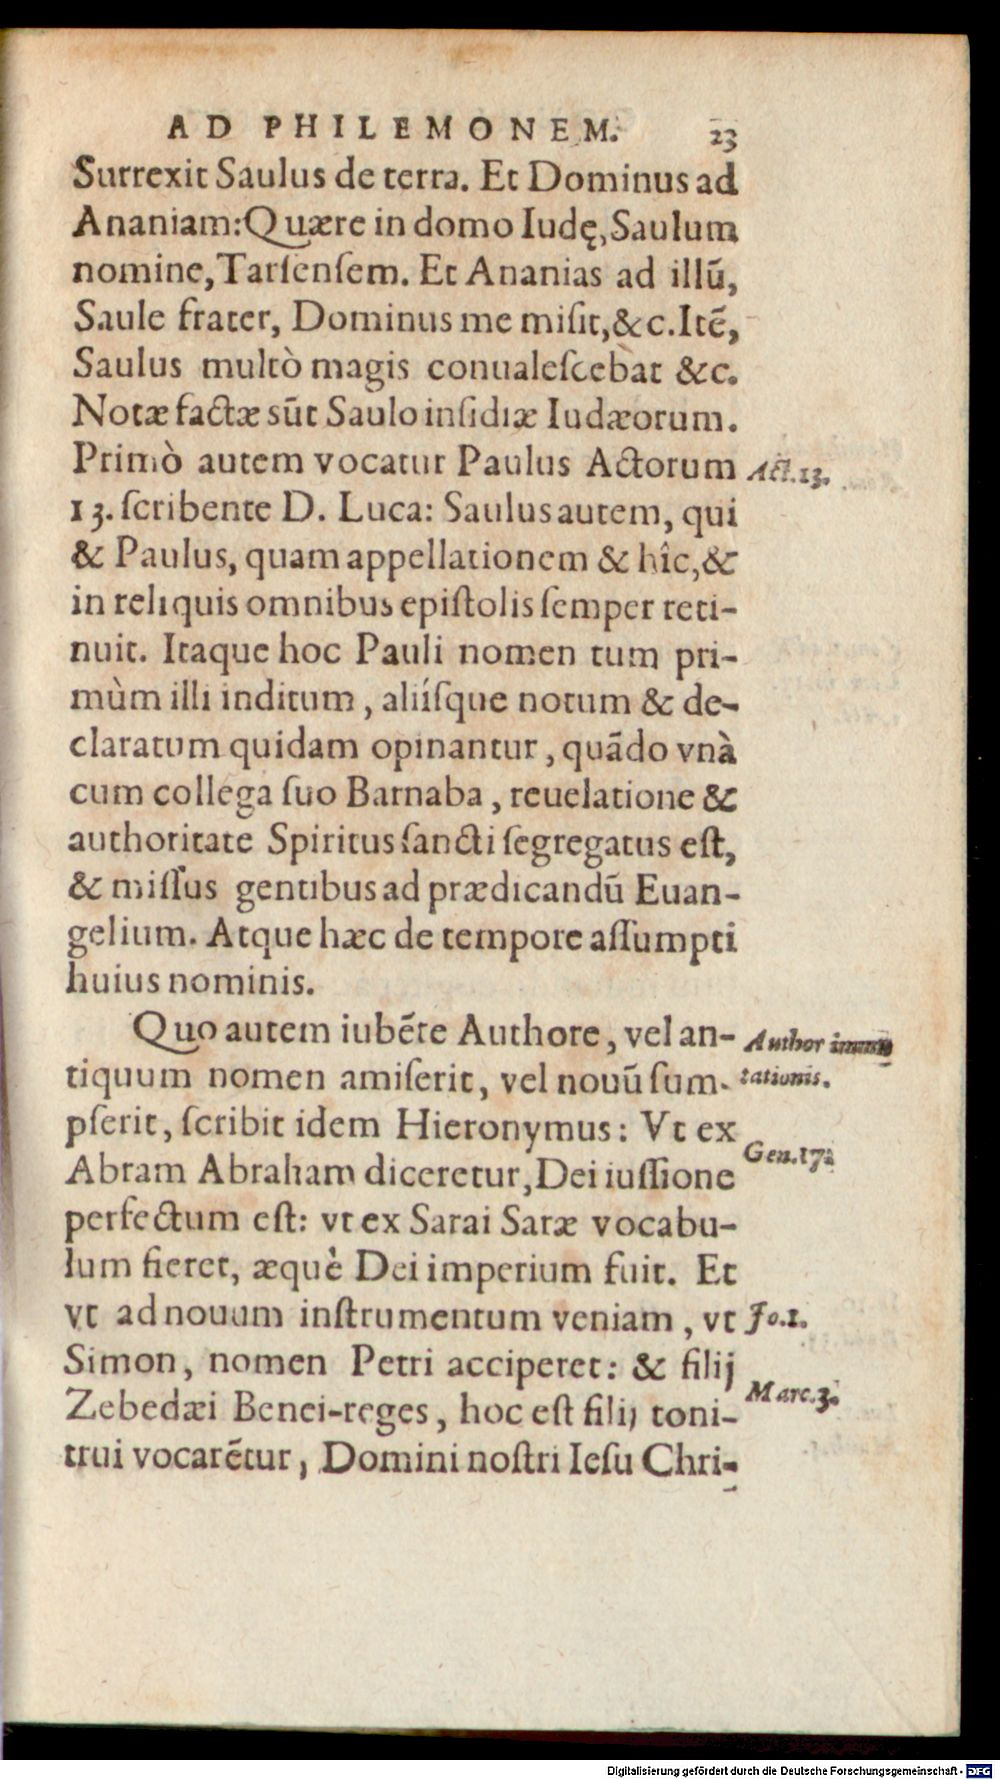 AD PHILEMONEM. 23
Surrexit Saulus de terra. Et Dominus ad
Ananiam: Quære in domo Iudę, Saulum
nomine, Tarſenſem. Et Ananias ad illū,
Saule frater, Dominus me miſit, &c. Itē,
Saulus multò magis conualeſcebat &c.
Notæ factæ sūt Saulo inſidiæ Iudæorum.
Primò autem vocatur Paulus Actorum
Act. 13.
13. ſcribente D. Luca: Saulus autem, qui
& Paulus, quam appellationem & hîc, &
in reliquis omnibus epiſtolis ſemper reti-
nuit. Itaque hoc Pauli nomen tum pri-
mùm illi inditum, aliíſque notum & de-
claratum quidam opinantur, quādo vnà
cum collega ſuo Barnaba, reuelatione &
authoritate Spiritus ſancti ſegregatus eſt,
& miſſus gentibus ad prædicandū Euan-
gelium. Atque hæc de tempore aſſumpti
huius nominis.
Quo autem iubēte Authore, vel an-
Author immu
tiquum nomen amiſerit, vel nouū ſum-
tationis.
pſerit, ſcribit idem Hieronymus: Vt ex
Gen. 17.
Abram Abraham diceretur, Dei iuſſione
perfectum eſt: vt ex Sarai Saræ vocabu-
lum fieret, æquè Dei imperium fuit. Et
vt ad nouum inſtrumentum veniam, vt
Jo. 1.
Simon, nomen Petri acciperet: & filij
Marc. 3.
Zebedæi Benei-reges, hoc eſt filij toni-
trui vocarētur, Domini noſtri Ieſu Chri-
Digitalisierung gefördert durch die Deutsche Forschungsgemeinschaft - DFG